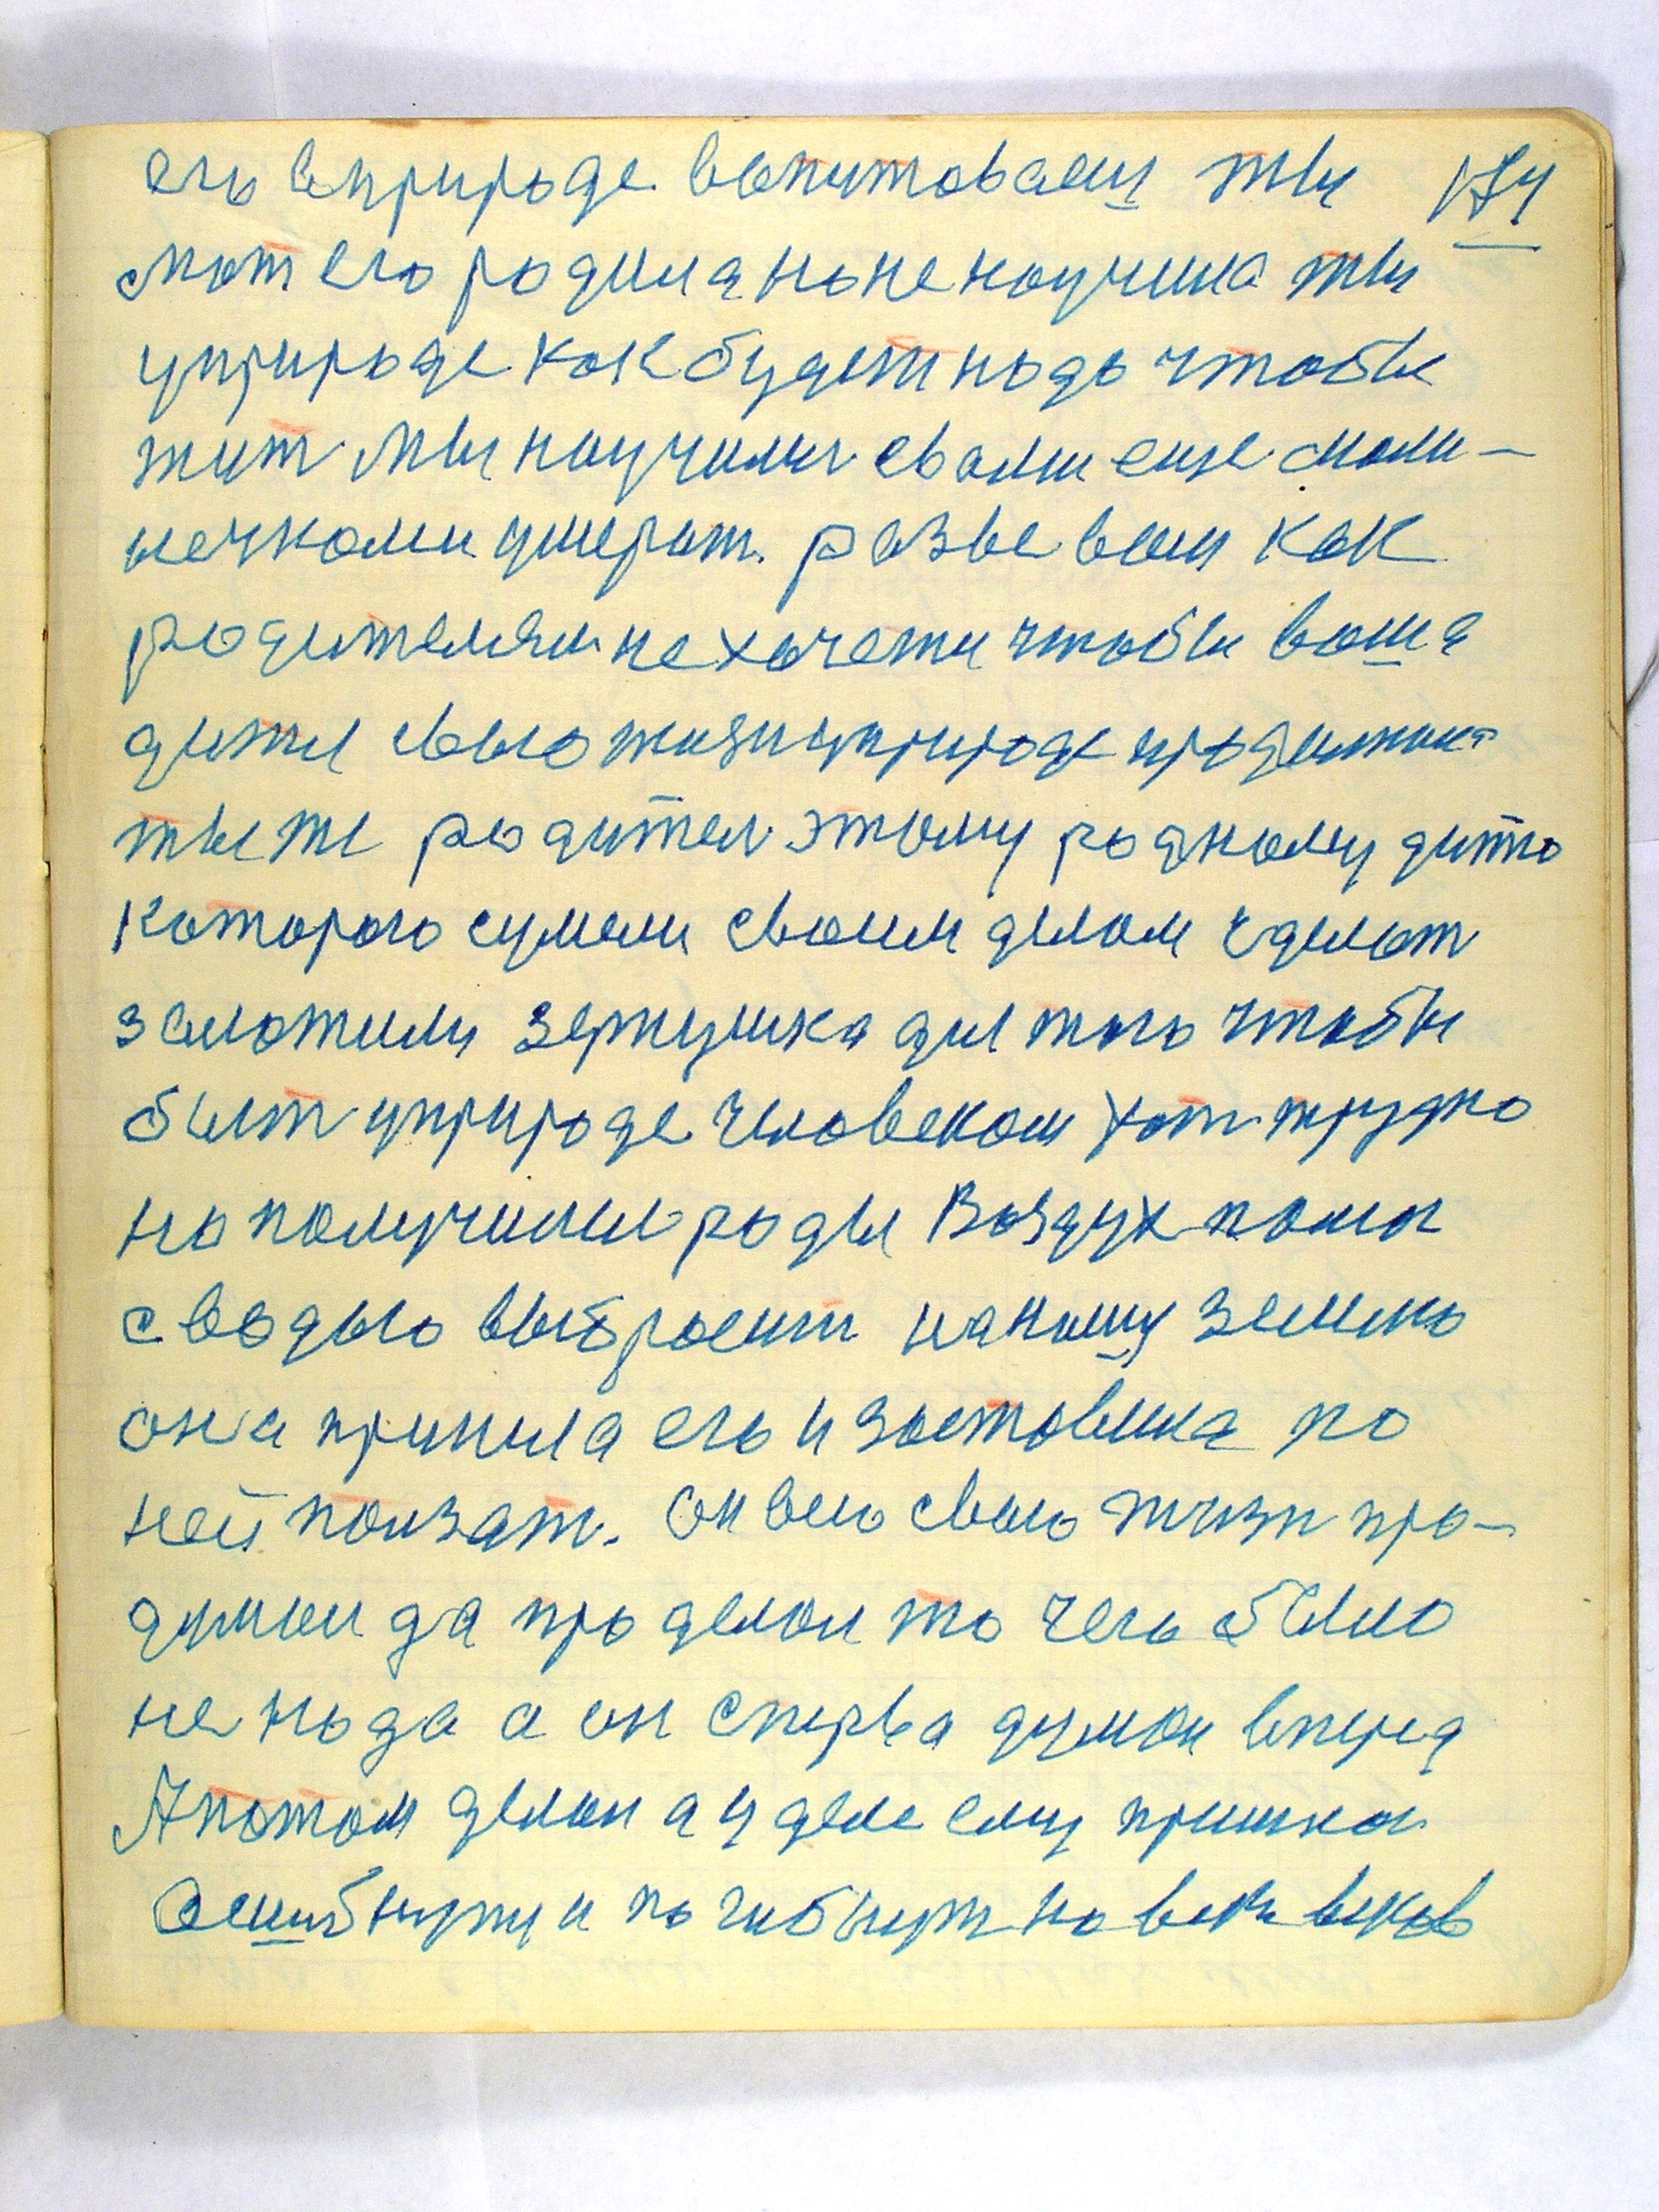 его вприроде вопитоваеш ты 174
мат его родила но не научила ты
уприроде как будет нодо чтобы
жит мы научилис свами еще мали-
нечкоми умерат. разве вам как
родителям нехочети чтобы ваша
дити свою жизн уприроде продилжила
ты же родител этому родному дитю
которого сумели своим делом сделат
заложили зернушка для того чтобы
быт уприроде человеком хот трудно
но получилис роды Воздух пошол
сводою выбросит на нашу землю
она приняла его и заставила по
ней ползат. Он всю свою жизн про-
думал да проделал то чего было
не нода а он сперва думал вперед
А потом делал а у деле ему пришлос
Ошибнутц и погибнут на веки веков